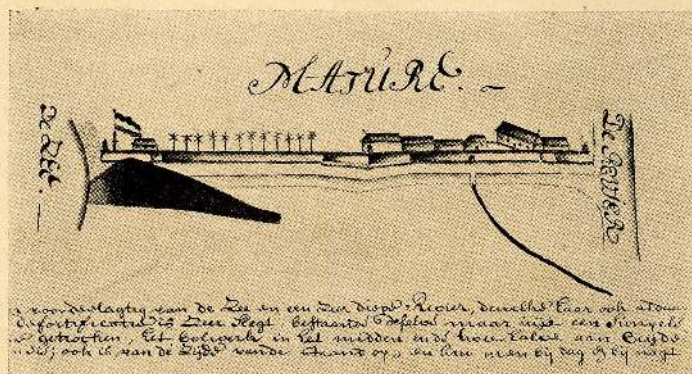 MATURE. –
De ZEE. –
De
voordeelagtig van de Zee en een Zeer diepe Revier, dewelke haar ook
de fortificatie is Zeer Slegt, bestaande deselve maar een Simpele
getrocken, het bolwerk in het midden twee halve aan beijde
ook is van de Zijde vande Strand op, en kan men bij dag of bij nagt